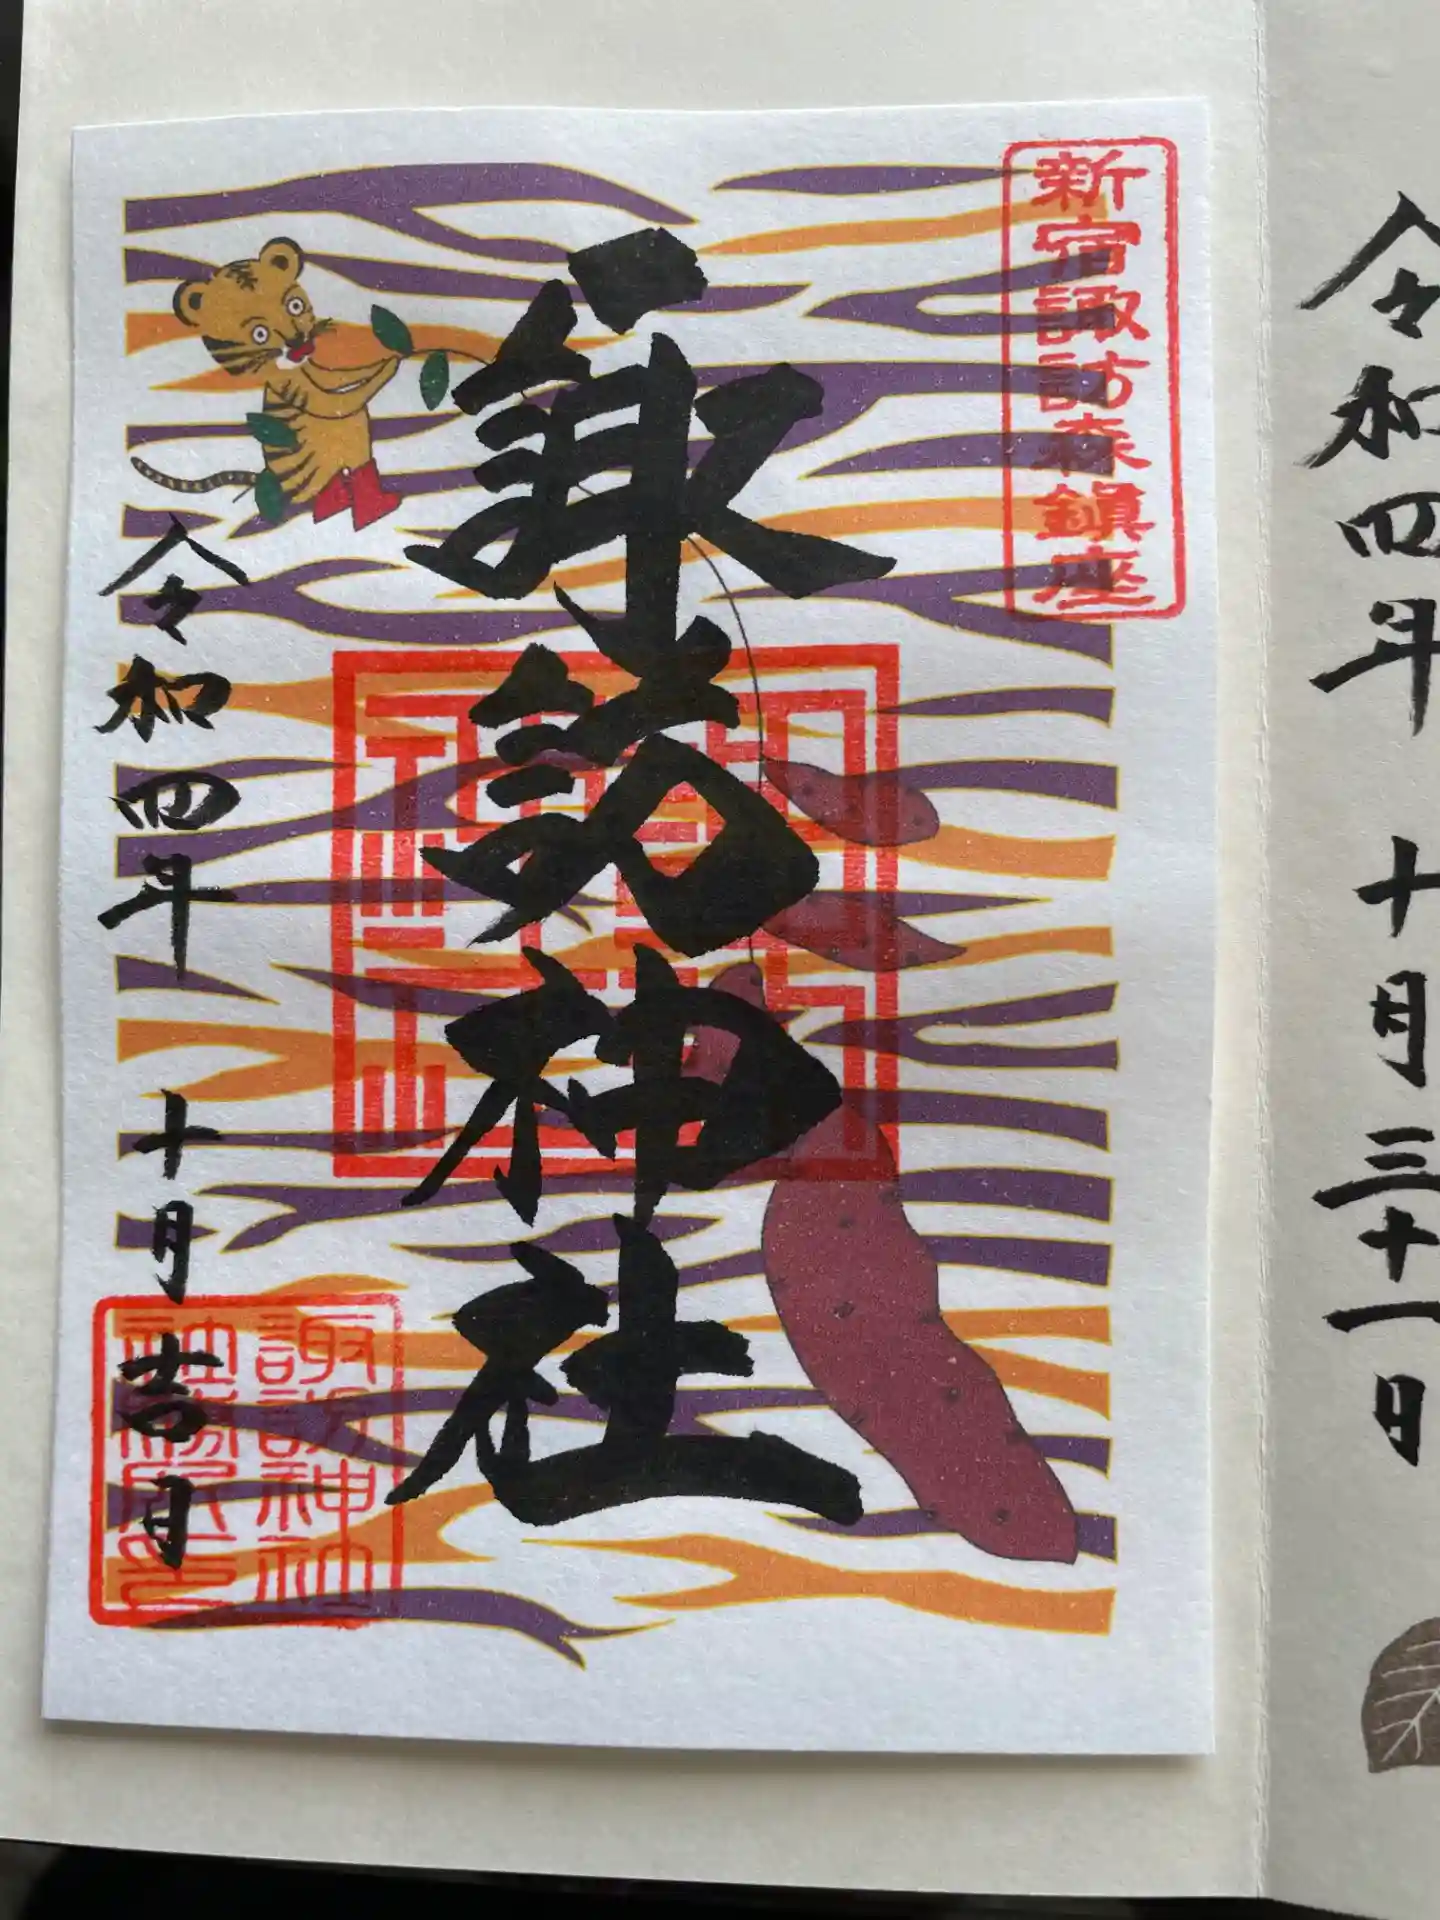 令和四年 十月三十一日
新宿諏訪森鎮座
諏訪神社
令和四年 十月吉日
諏訪神社